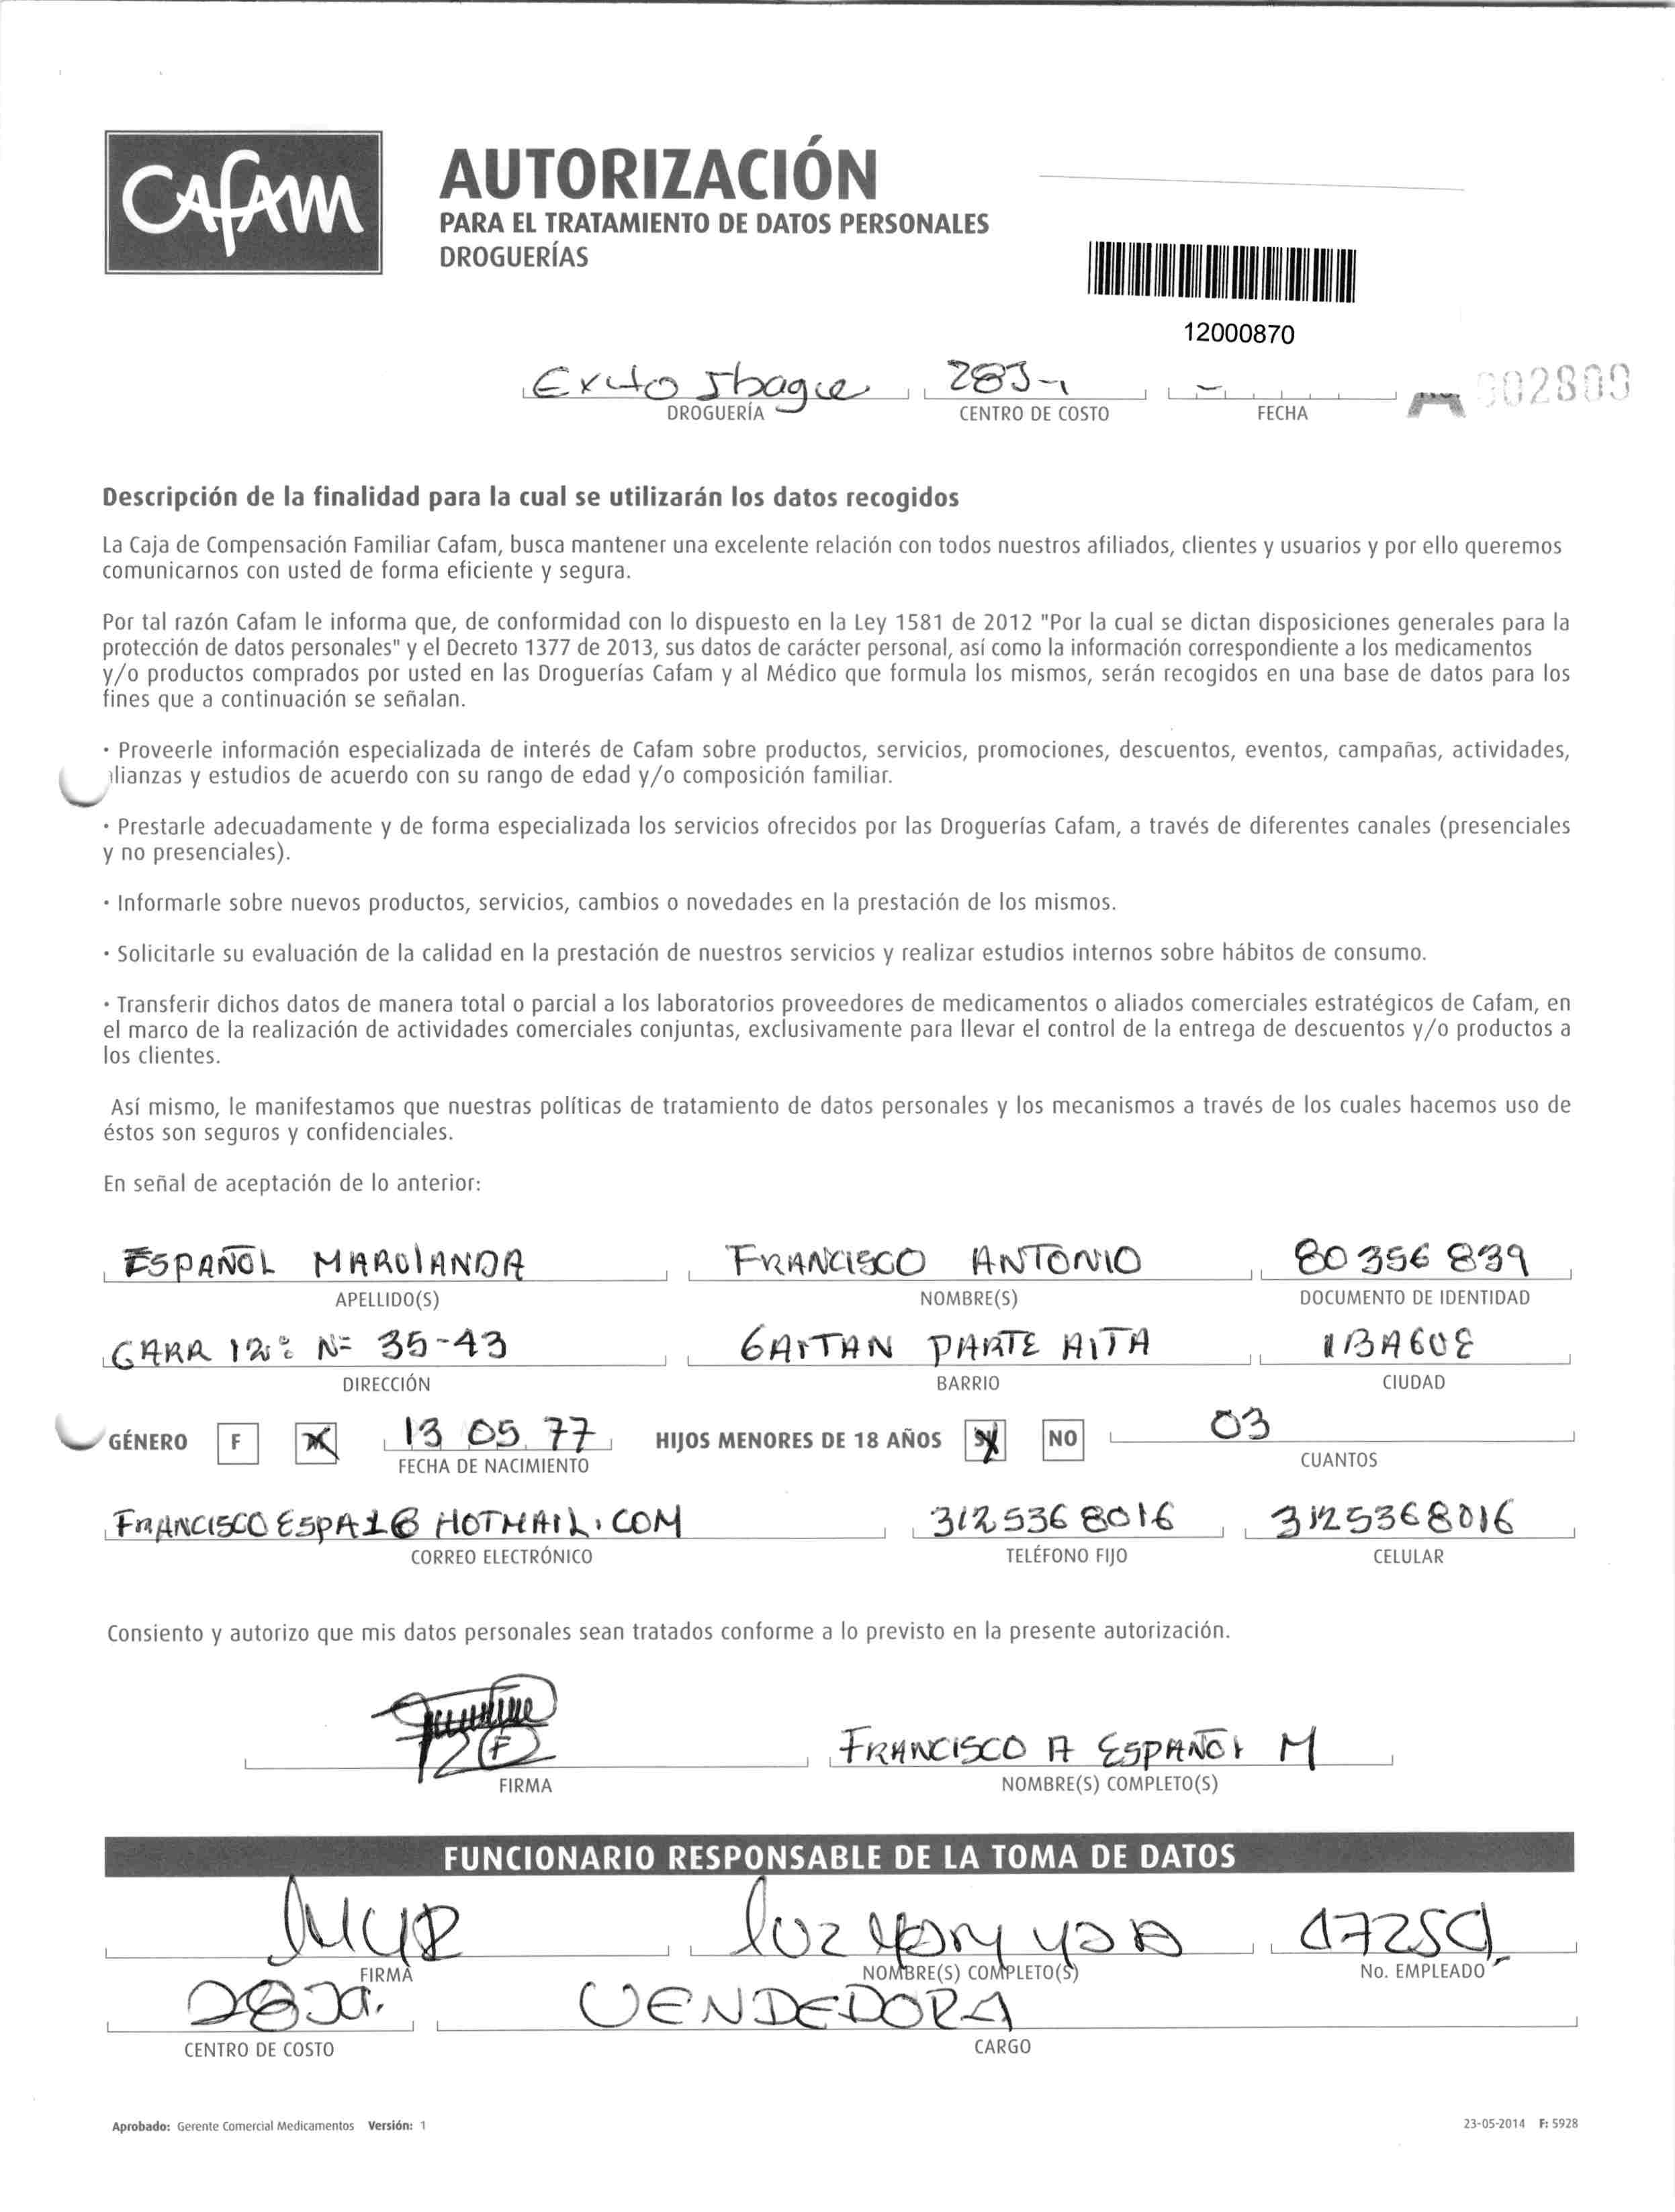 CAFAM
AUTORIZACIÓN
PARA EL TRATAMIENTO DE DATOS PERSONALES
DROGUERÍAS
12000870
Exito Ibague
DROGUERÍA CENTRO DE COSTO FECHA
002809
Descripción de la finalidad para la cual se utilizarán los datos recogidos
La Caja de Compensación Familiar Cafam, busca mantener una excelente relación con todos nuestros afiliados, clientes y usuarios y por ello queremos
comunicarnos con usted de forma eficiente y segura.
Por tal razón Cafam le informa que, de conformidad con lo dispuesto en la Ley 1581 de 2012 "Por la cual se dictan disposiciones generales para la
protección de datos personales" y el Decreto 1377 de 2013, sus datos de carácter personal, así como la información correspondiente a los medicamentos
y/o productos comprados por usted en las Droguerías Cafam y al Médico que formula los mismos, serán recogidos en una base de datos para los
fines que a continuación se señalan.
· Proveerle información especializada de interés de Cafam sobre productos, servicios, promociones, descuentos, eventos, campañas, actividades,
alianzas y estudios de acuerdo con su rango de edad y/o composición familiar.
· Prestarle adecuadamente y de forma especializada los servicios ofrecidos por las Droguerías Cafam, a través de diferentes canales (presenciales
y no presenciales).
· Informarle sobre nuevos productos, servicios, cambios o novedades en la prestación de los mismos.
· Solicitarle su evaluación de la calidad en la prestación de nuestros servicios y realizar estudios internos sobre hábitos de consumo.
· Transferir dichos datos de manera total o parcial a los laboratorios proveedores de medicamentos o aliados comerciales estratégicos de Cafam, en
el marco de la realización de actividades comerciales conjuntas, exclusivamente para llevar el control de la entrega de descuentos y/o productos a
los clientes.
Así mismo, le manifestamos que nuestras políticas de tratamiento de datos personales y los mecanismos a través de los cuales hacemos uso de
éstos son seguros y confidenciales.
En señal de aceptación de lo anterior:
ESPAÑOL MARULANDA FRANCISCO ANTONIO 80356839
APELLIDO(S) NOMBRE(S) DOCUMENTO DE IDENTIDAD
CARR 12 N= 35-43 GAITAN PARTE ALTA IBAGUE
DIRECCIÓN BARRIO CIUDAD
GÉNERO F 13 05 77 HIJOS MENORES DE 18 AÑOS SI NO 03
FECHA DE NACIMIENTO CUANTOS
FRANCISCOESPA1@HOTMAIL.COM 3125368016 3125368016
CORREO ELECTRÓNICO TELÉFONO FIJO CELULAR
Consiento y autorizo que mis datos personales sean tratados conforme a lo previsto en la presente autorización.
FRANCISCO A ESPAÑOL M
FIRMA NOMBRE(S) COMPLETO(S)
FUNCIONARIO RESPONSABLE DE LA TOMA DE DATOS
luz
FIRMA NOMBRE(S) COMPLETO(S) No. EMPLEADO
VENDEDORA
CENTRO DE COSTO CARGO
Aprobado: Gerente Comercial Medicamentos Versión: 1 23-05-2014 F: 5928